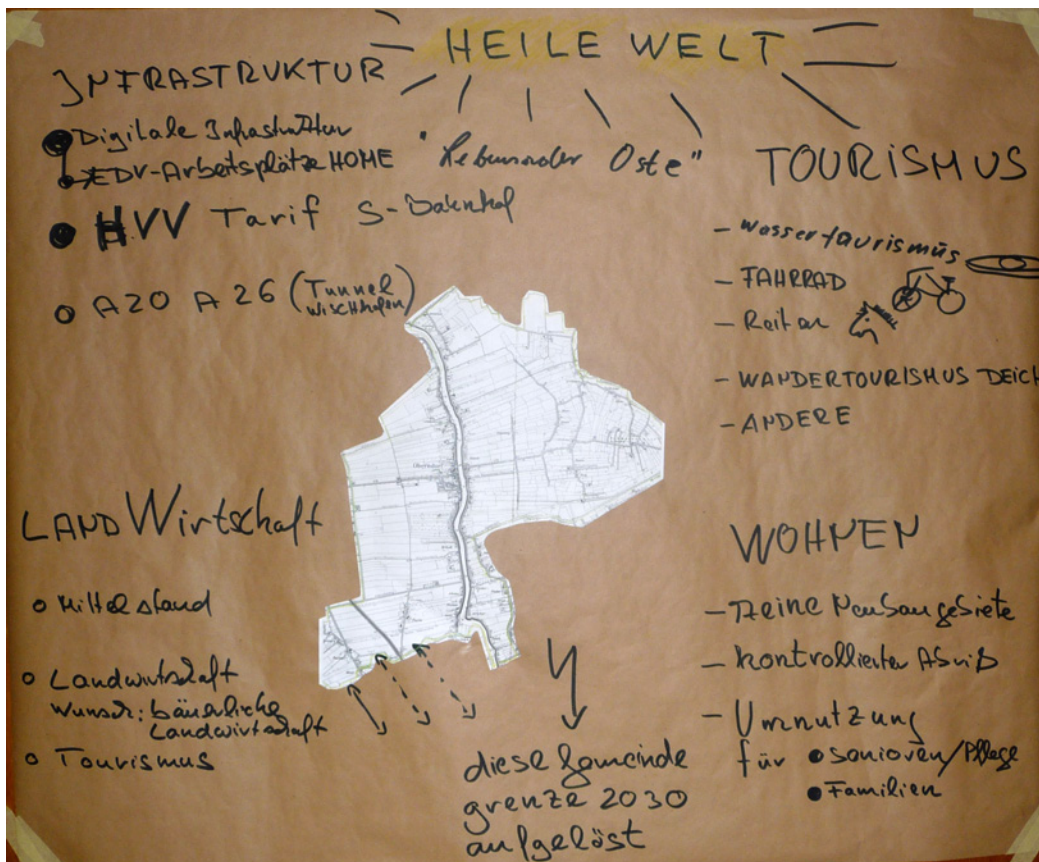 HEILE WELT
"Lebensader Oste"
INFRASTRUKTUR
Digitale Infrastruktur
EDV-Arbeitsplätze HOME
HVV Tarif S-Bahnhof
A20 A26 (Tunnel
Wischhafen)
TOURISMUS
- Wassertourismus
- FAHRRAD
- Reiten
- WANDERTOURISMUS DEICH
- ANDERE
LANDWirtschaft
Mittelstand
Landwirtschaft
Wunsch: bäuerliche
Landwirtschaft
Tourismus
diese Gemeinde
grenze 2030
aufgelöst
WOHNEN
- Keine Neubaugebiete
- kontrollierter Abriß
- Umnutzung
für Senioren/Pflege
Familien